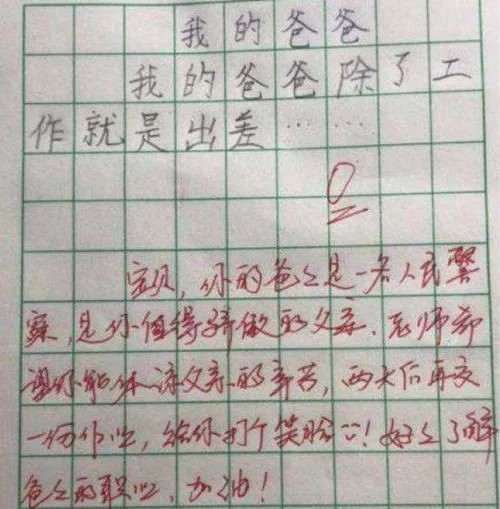 我的爸爸
我的爸爸除了工
作就是出差……
0
宝贝,你的爸爸是一名人民警
察,是你值得骄傲的父亲.老师希
望你能体谅父亲的辛苦,两天后再交
一份作业,给你打个笑脸!好好了解
爸爸的职业,加油!